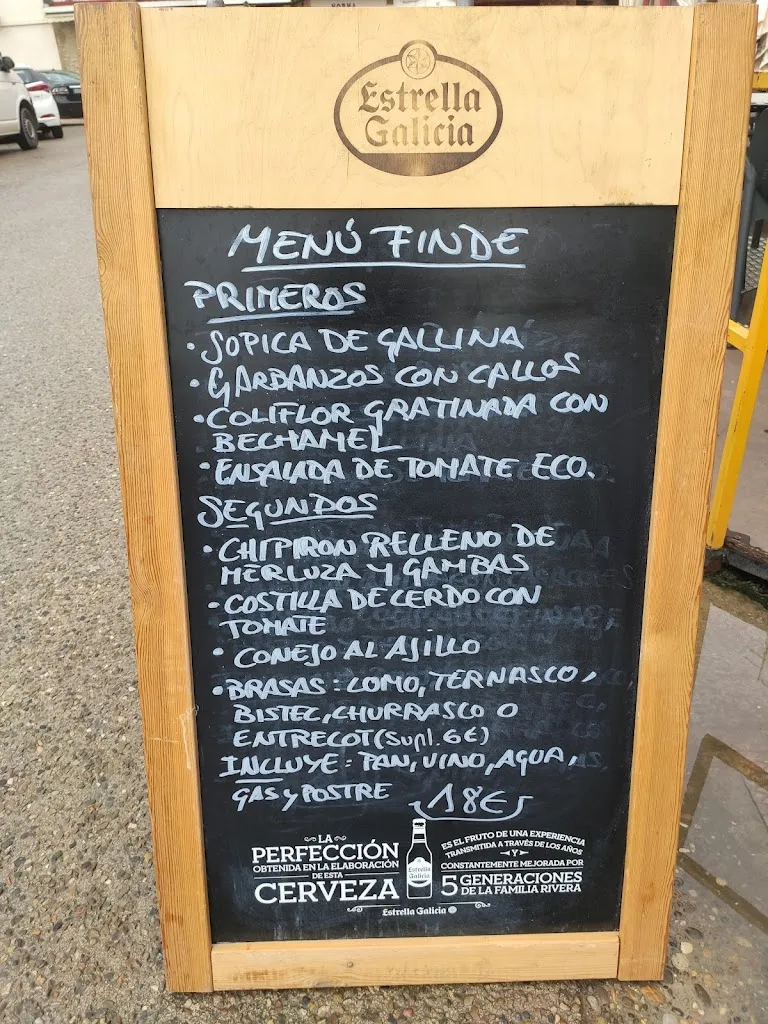 Estrella
Galicia
MENÚ FINDE
PRIMEROS
• SOPICA DE GALLINA
• GARBANZOS CON CALLOS
• COLIFLOR GRATINADA CON
BECHAMEL
• ENSALADA DE TOMATE ECO.
SEGUNDOS
• CHIPIRON RELLENO DE
MERLUZA Y GAMBAS
• COSTILLA DE CERDO CON
TOMATE
• CONEJO AL AJILLO
• BRASAS: LOMO, TERNASCO,
BISTEC, CHURRASCO O
ENTRECOT (Supl. 6€)
INCLUYE: PAN, VINO, AGUA,
GAS y POSTRE 18€
LA
PERFECCIÓN
OBTENIDA EN LA ELABORACIÓN
DE ESTA
CERVEZA
Estrella
Galicia
ES EL FRUTO DE UNA EXPERIENCIA
TRANSMITIDA A TRAVÉS DE LOS AÑOS
Y
CONSTANTEMENTE MEJORADA POR
5 GENERACIONES
DE LA FAMILIA RIVERA
Estrella Galicia